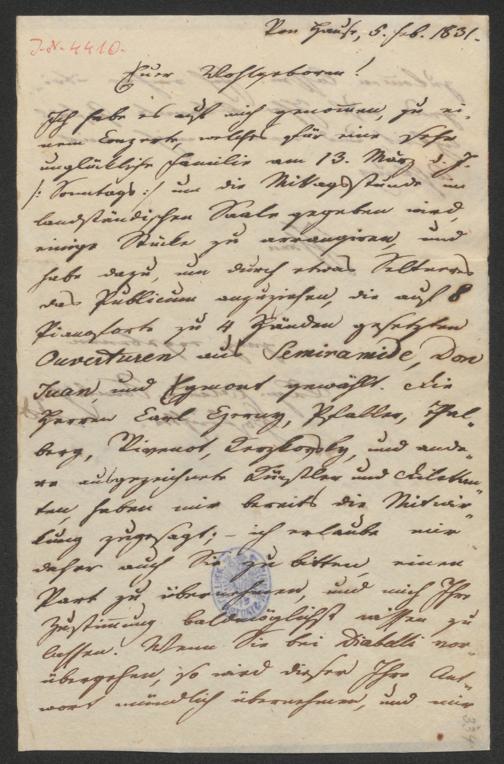 J.-N. 4410.
Von Hause, 5. Feb. 1831.
Euer Wohlgeboren!
Ich habe es auf mich genommen, zu ei-
nem Conzerte, welches für eine sehr
unglückliche Familie am 13. März d. J.
/: Sonntags :/ um die Mittagsstunde im
landständischen Saale gegeben wird,
einige Stücke zu arrangiren, und
habe dazu, um durch etwas Seltenes
das Publicum anzuziehen, die auf 8
Pianoforte zu 4 Händen gesetzten
Ouverturen aus Semiramide, Don
Juan, und Egmont gewählt. Die
Herren Carl Czerny, Pfaller, Thal-
berg, Pivenot, und ande-
re ausgezeichnete Künstler und Diletan-
ten, haben mir bereits die Mitwir-
kung zugesagt; – ich erlaube mir
daher auch Sie zu bitten, einen
Part zu übernehmen, und mich Ihre
Zustimmung baldmöglichst wissen zu
lassen. Wenn Sie bei Diabelli vor-
übergehen, so wird dieser Ihre Ant-
wort mündlich übernehmen, und mir
334